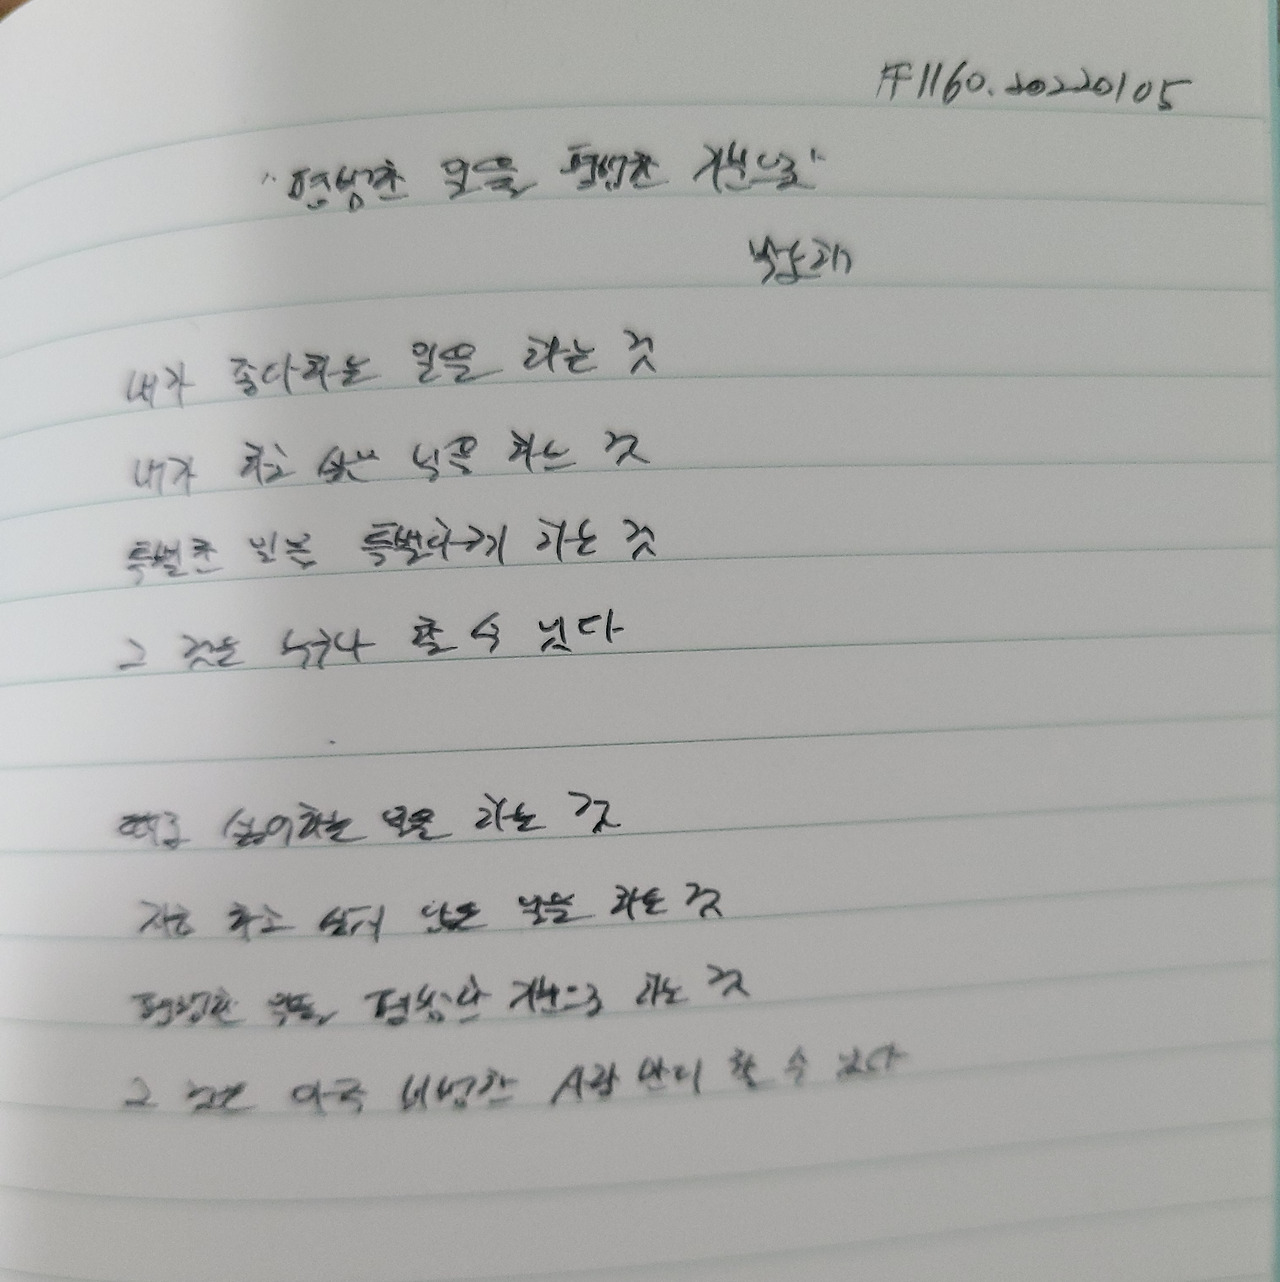 #1160.20220105
"평범한 일을 평범한 것으로"
내가 좋다하는 일을 하는 것
내가 하고 싶은 일을 하는 것
특별한 일을 특별하게 하는 것
그 것은 누구나 할 수 있다
싫어하는 일을 하는 것
하고 싶지 않은 일을 하는 것
평범한 일을 평범한 하는 것
그 것은 아주 비범한 사람만이 할 수 있다